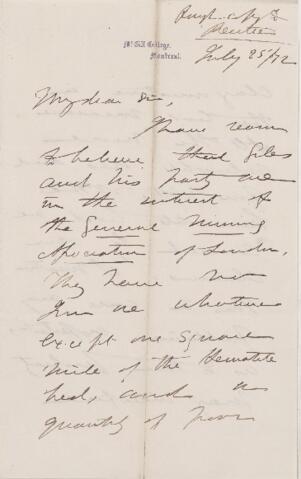 Rough copy to
McGill College,
Montreal.
July 25/72
My dear Sir,
I have reason
to believe that Giles
and his party are
in the interest of
the General Mining
Association of London.
They have no
whatever
except one Square
mile of the Hematite
bed, and a
quantity of poor